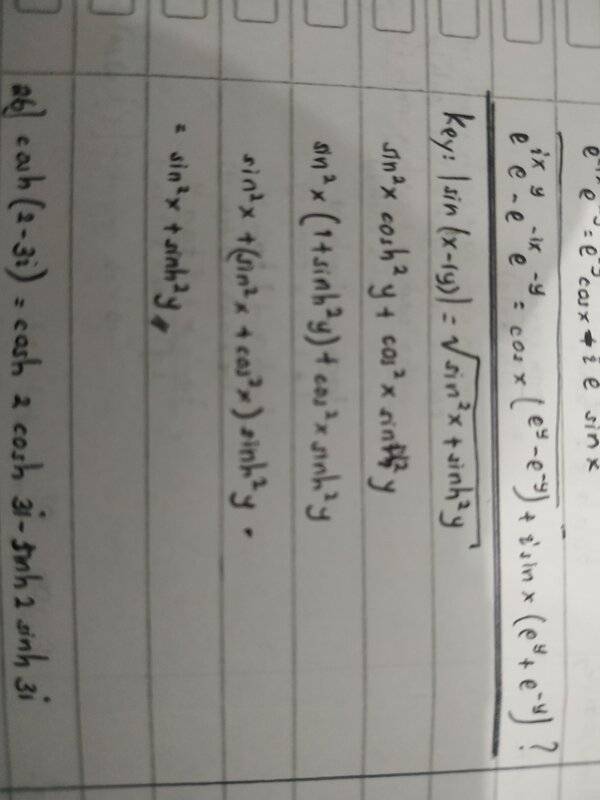 e^{-ix} e^{-y} = e^{-y} cos x + i e sin x
e^{ix} e^{y} - e^{-ix} e^{-y} = cos x (e^y - e^{-y}) + i sin x (e^y + e^{-y}) ?
Key: |sin (x-iy)| = √sin²x + sinh²y
sin²x cosh²y + cos²x sinh²y
sin²x (1+sinh²y) + cos²x sinh²y
sin²x + (sin²x + cos²x) sinh²y .
= sin²x + sinh²y
2b) cosh (2-3i) = cosh 2 cosh 3i - sinh 2 sinh 3i